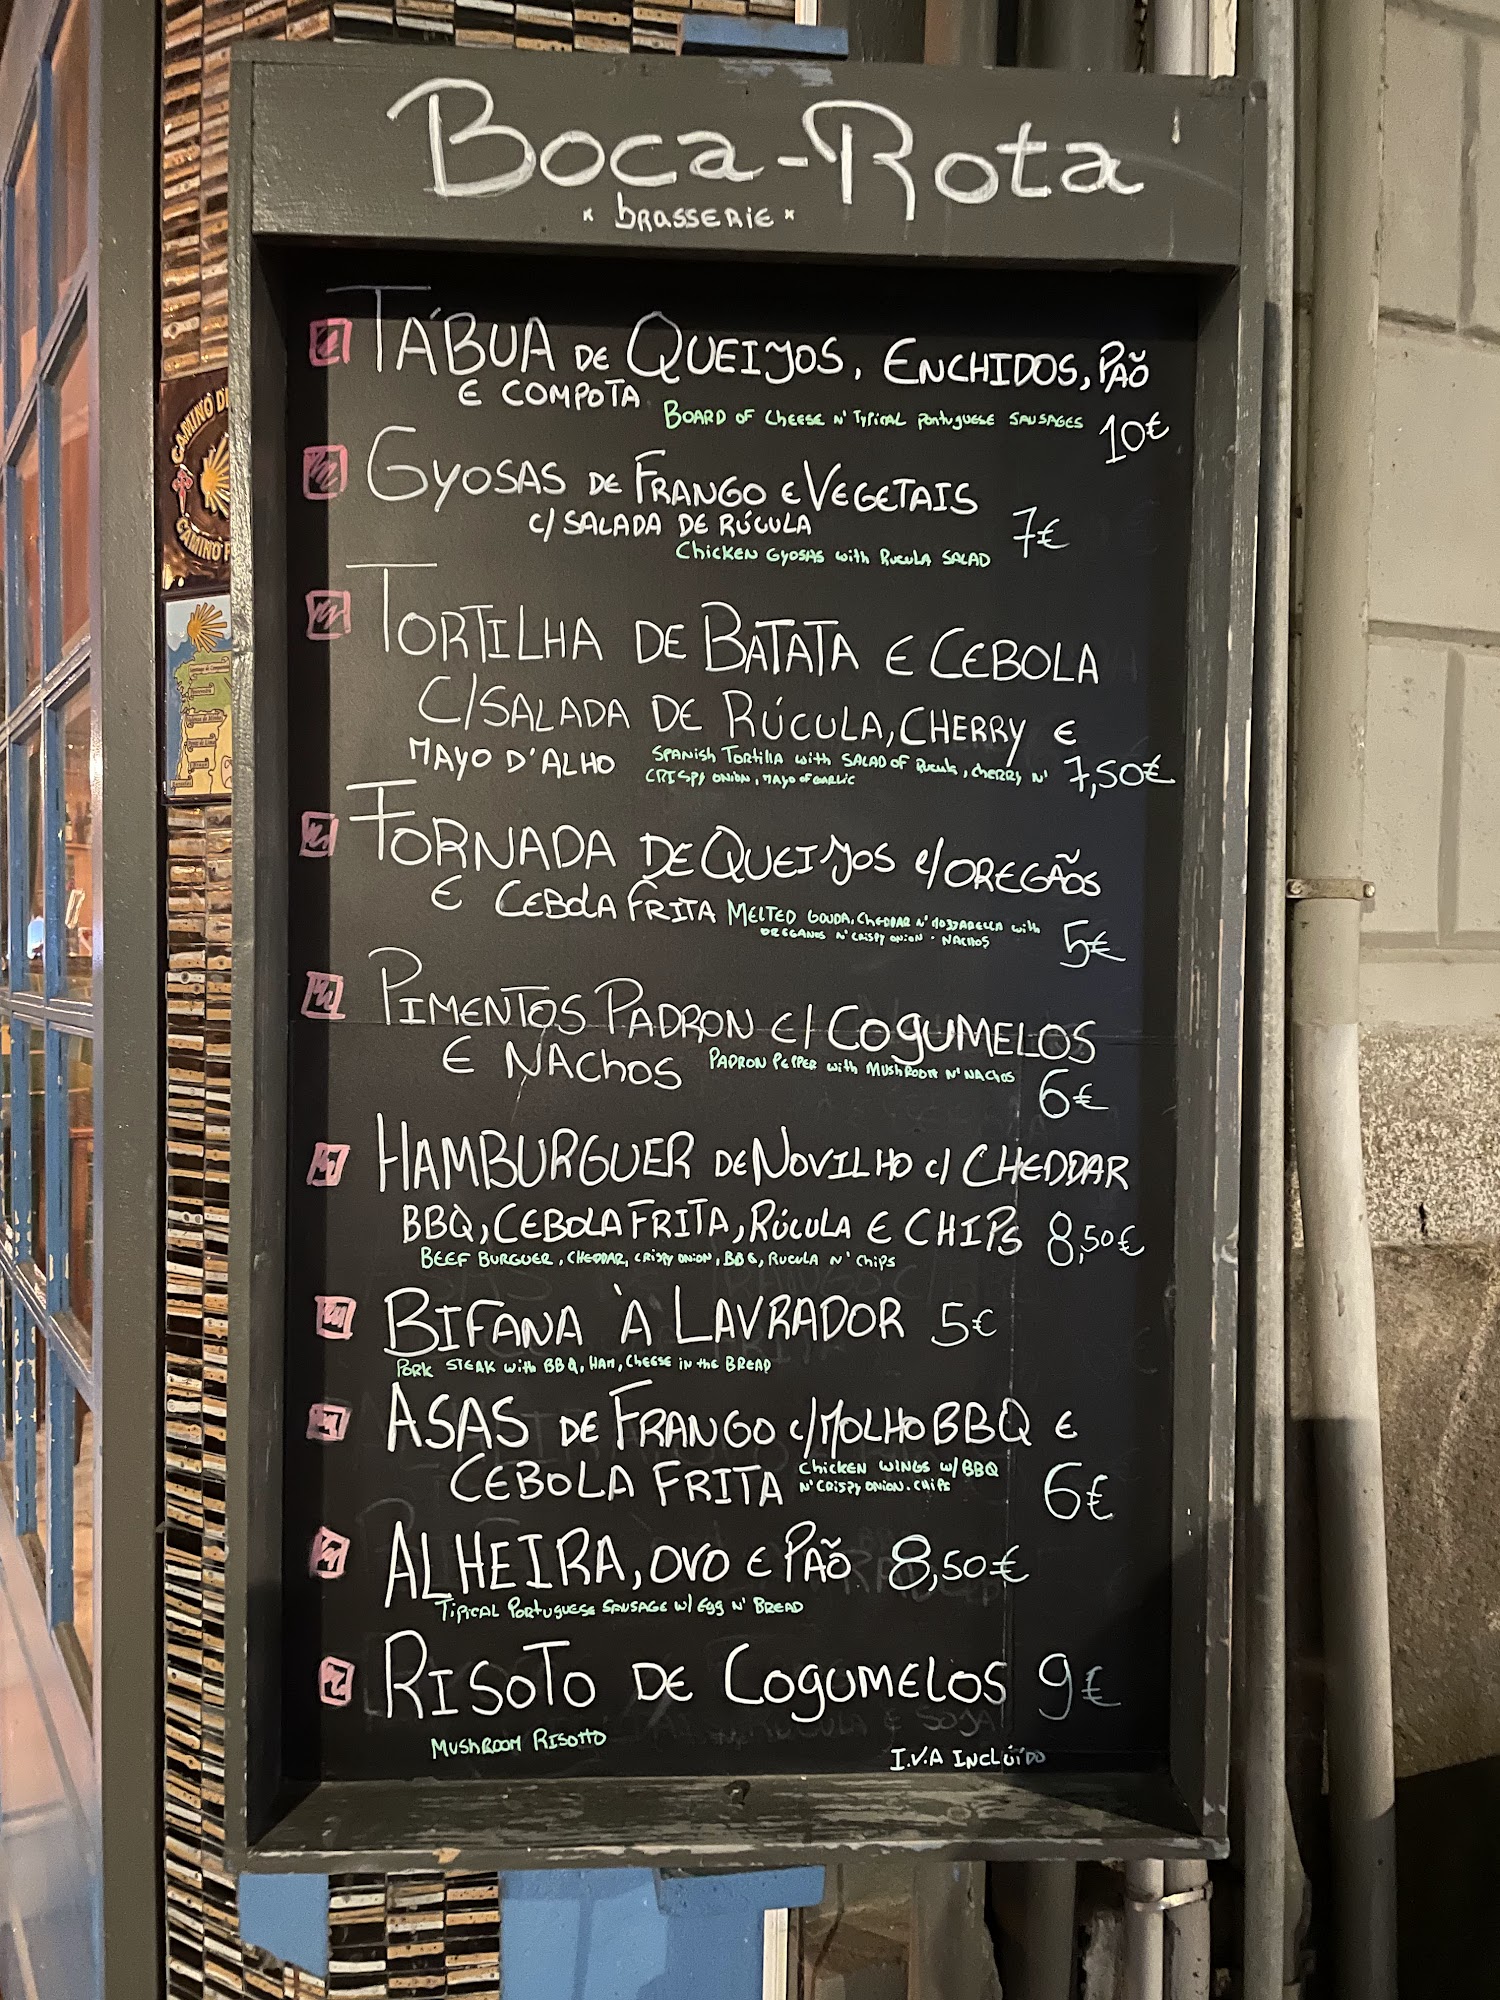 Boca-Rota
* brasserie *
TÁBUA DE QUEIJOS, ENCHIDOS, PÃO
E COMPOTA
BOARD OF CHEESE N' TYPICAL PORTUGUESE SAUSAGES
10€
GYOSAS DE FRANGO E VEGETAIS
C/ SALADA DE RÚCULA
7€
CHICKEN GYOSAS WITH RUCULA SALAD
TORTILHA DE BATATA E CEBOLA
C/SALADA DE RÚCULA, CHERRY E
MAYO D'ALHO
SPANISH TORTILLA WITH SALAD OF RUCULA, CHERRY N'
CRISPY ONION, MAYO OF GARLIC
7,50€
TORNADA DE QUEIJOS C/OREGÃOS
E CEBOLA FRITA
MELTED GOUDA, CHEDDAR N' MOZZARELLA WITH
OREGANOS N' CRISPY ONION. NACHOS
5€
PIMENTOS PADRON C/ COGUMELOS
E NACHOS
PADRON PEPPER WITH MUSHROOM N' NACHOS
6€
HAMBURGUER DE NOVILHO C/ CHEDDAR
BBQ, CEBOLA FRITA, RÚCULA E CHIPS 8,50€
BEEF BURGUER, CHEDDAR, CRISPY ONION, BBQ, RUCULA N' CHIPS
BIFANA À LAVRADOR 5€
PORK STEAK WITH BBQ, HAM, CHEESE IN THE BREAD
ASAS DE FRANGO C/MOLHO BBQ E
CEBOLA FRITA
CHICKEN WINGS W/ BBQ
N' CRISPY ONION. CHIPS
6€
ALHEIRA, OVO E PÃO 8,50€
TIPICAL PORTUGUESE SAUSAGE W/ EGG N' BREAD
RISOTO DE COGUMELOS 9€
MUSHROOM RISOTTO
I.V.A INCLUÍDO
CAMINO
CAMINO